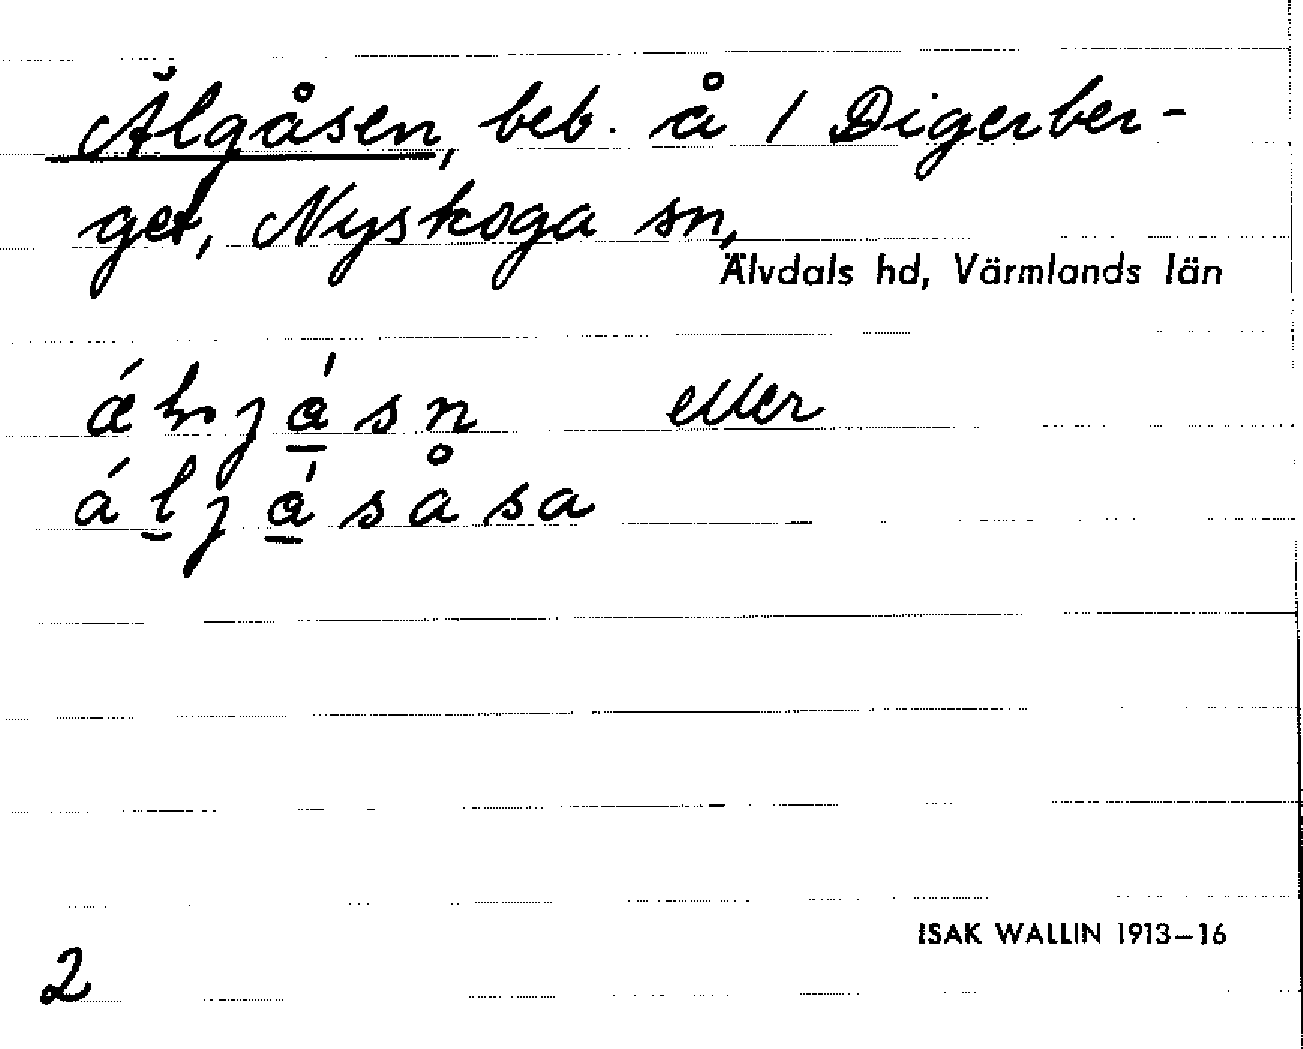 Älgåsen, beb. å 1 Digerber-
get, Nyskoga sn,
Älvdals hd, Värmlands län
eller
ISAK WALLIN 1913–16
2